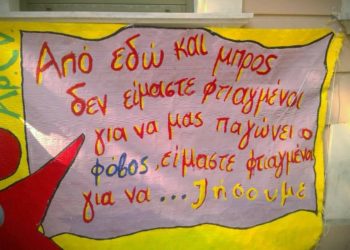 Από εδώ και μπρος
δεν είμαστε φτιαγμένοι
για να μας παγώνει ο
φόβος, είμαστε φτιαγμένοι
για να... Ζήσουμε